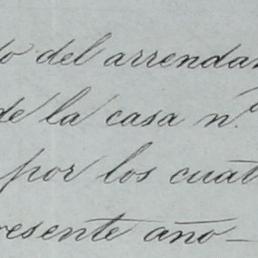 do del arrenda
de la casa n.º
por los cuat
resente año—